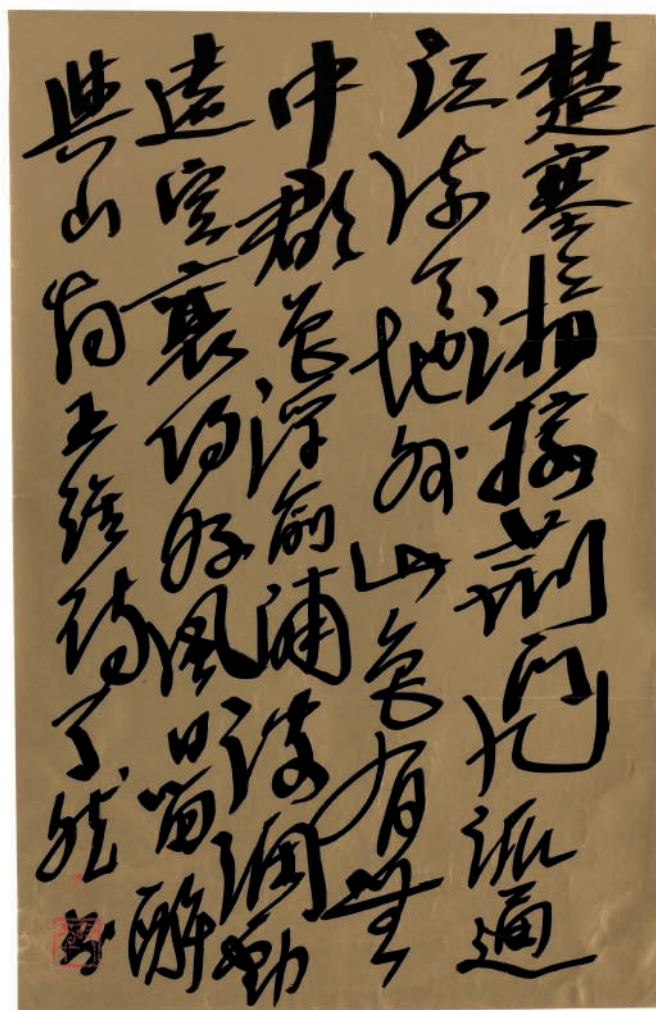 楚塞三湘接荆门九派通
江流天地外山色有無
中郡邑浮前浦波澜動
遠空襄陽好風日留醉
與山翁王維詩了然书